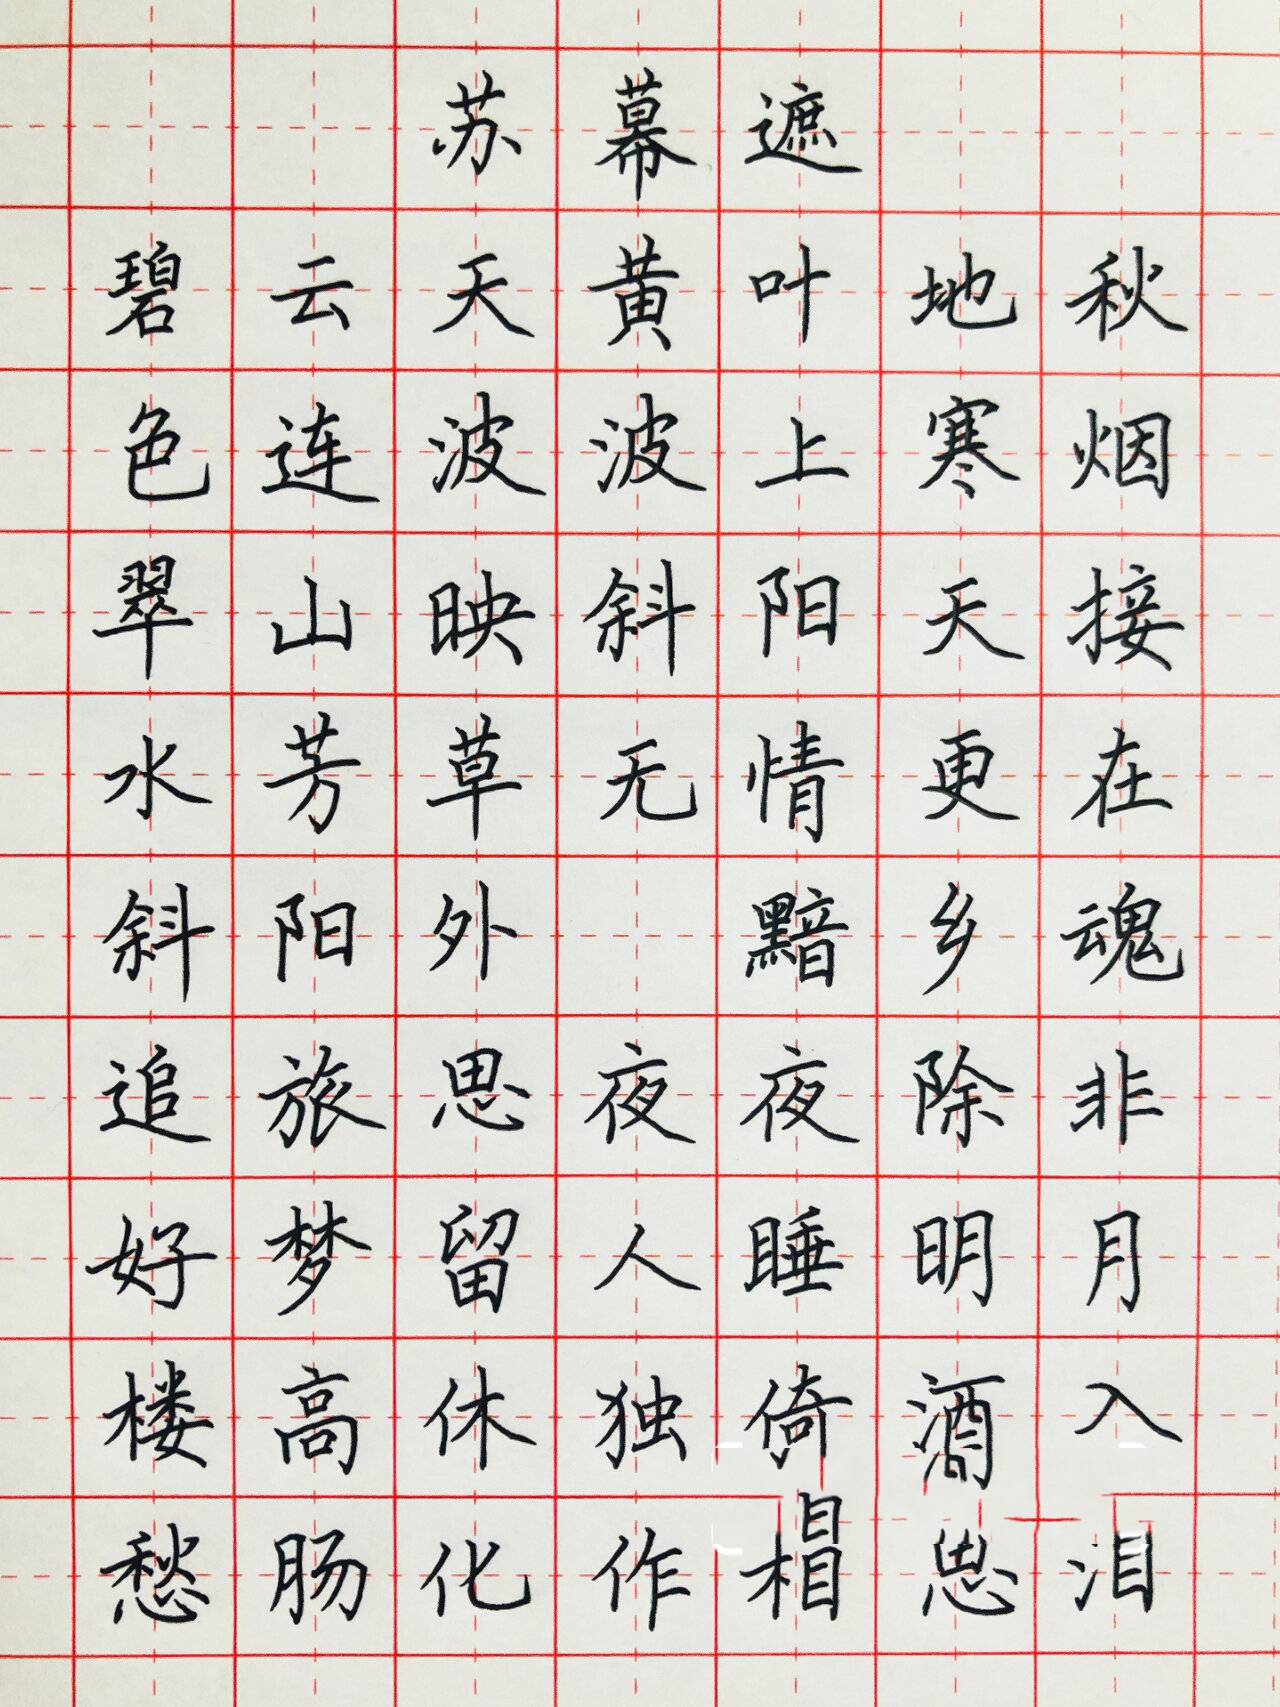 苏幕遮
碧云天黄叶地秋
色连波波上寒烟
翠山映斜阳天接
水芳草无情更在
斜阳外 黯乡魂
追旅思夜夜除非
好梦留人睡明月
楼高休独倚入
愁肠化作泪